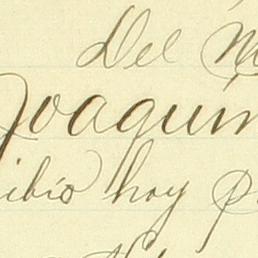 Del M
Joaquin
ibió hoy p